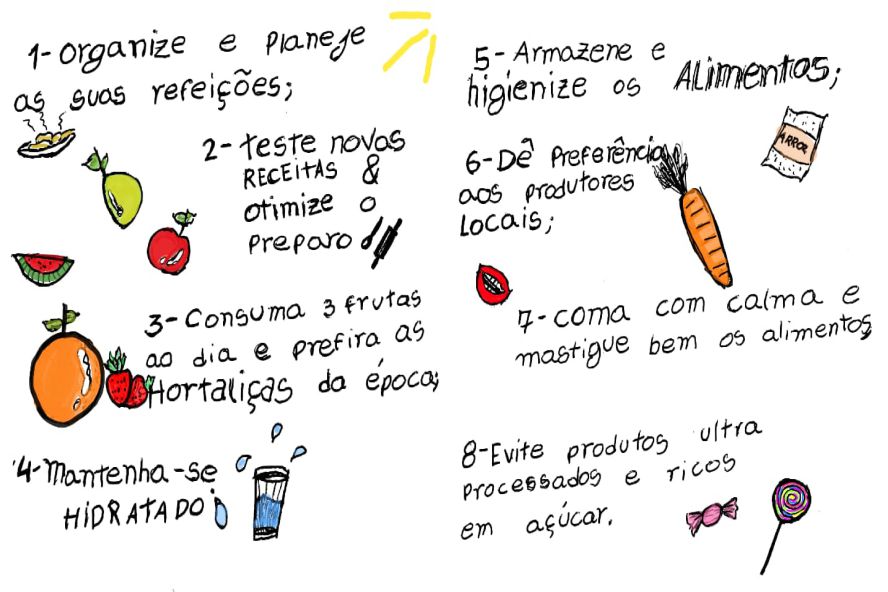 1-Organize e Planeje
as suas refeições;
2-teste novas
RECEITAS &
otimize o
preparo
3-Consuma 3 frutas
ao dia e prefira as
Hortaliças da época;
4-Mantenha-se
HIDRATADO;
5-Armazene e
higienize os ALIMENTOS;
ARROZ
6-Dê Preferência
aos produtores
Locais;
7-coma com calma e
mastigue bem os alimentos;
8-Evite produtos ultra
processados e ricos
em açúcar.